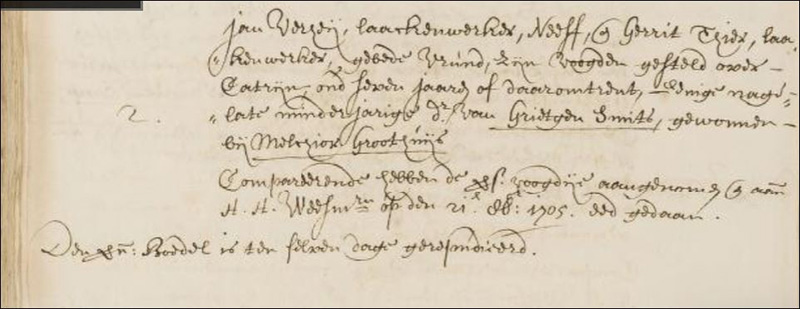 Jan Verheij, laackenwerker, Neeff, & Gerrit Thier, laa-
"kenwerker, gebede Vrund, zijn voogden gesteld over
Catrijn, oud seven jaaren of daaromtrent, eenige nage-
2. "late minderjarige dr. van Grietgen Smits, gewonnen
bij Melchior Groothuijs
Compareerende hebben de voogdije aangenomen & aan
H. H. Weesmrn op den 21. 8br: 1705. eed gedaan.
Den Boedel is ten selven dage gerepudieerd.